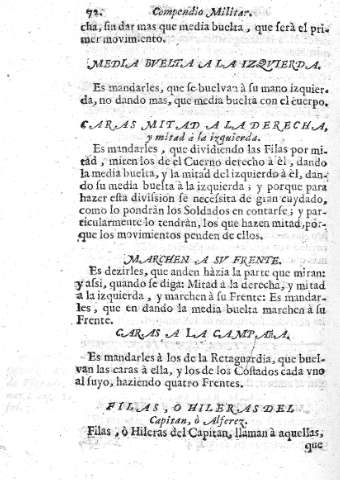 72. Compendio Militar.
cha, sin dar mas que media buelta, que serà el pri-
mer movimiento.
MEDIA BUELTA A LA IZQUIERDA.
Es mandarles, que se buelvan à su mano izquier-
da, no dando mas, que media buelta con el cuerpo.
CARAS MITAD A LA DERECHA,
y mitad à la izquierda.
Es mandarles, que dividiendo las Filas por mi-
tàd, miren los de el Cuerno derecho à èl, dando
la media buelta, y la mitad del izquierdo à èl, dan-
do su media buelta à la izquierda; y porque para
hazer esta división se necesita de gran cuydado,
como lo pondràn los Soldados en contarse; y par-
ticularmente lo tendràn, los que hazen mitad, por-
que los movimientos penden de ellos.
MARCHEN A SU FRENTE.
Es dezirles, que anden hàzia la parte que miran:
y assi, quando se diga: Mitad à la derecha, y mitad
à la izquierda, y marchen à su Frente: Es mandar-
les, que en dando la media buelta marchen à su
Frente.
CARAS A LA CAMPAÑA.
Es mandarles à los de la Retaguardia, que buel-
van las caras à ella, y los de los Costados cada vno
al suyo, haziendo quatro Frentes.
FILAS, Ò HILERAS DEL
Capitan, ò Alferez.
Filas, ò Hileras del Capitan, llaman à aquellas,
que